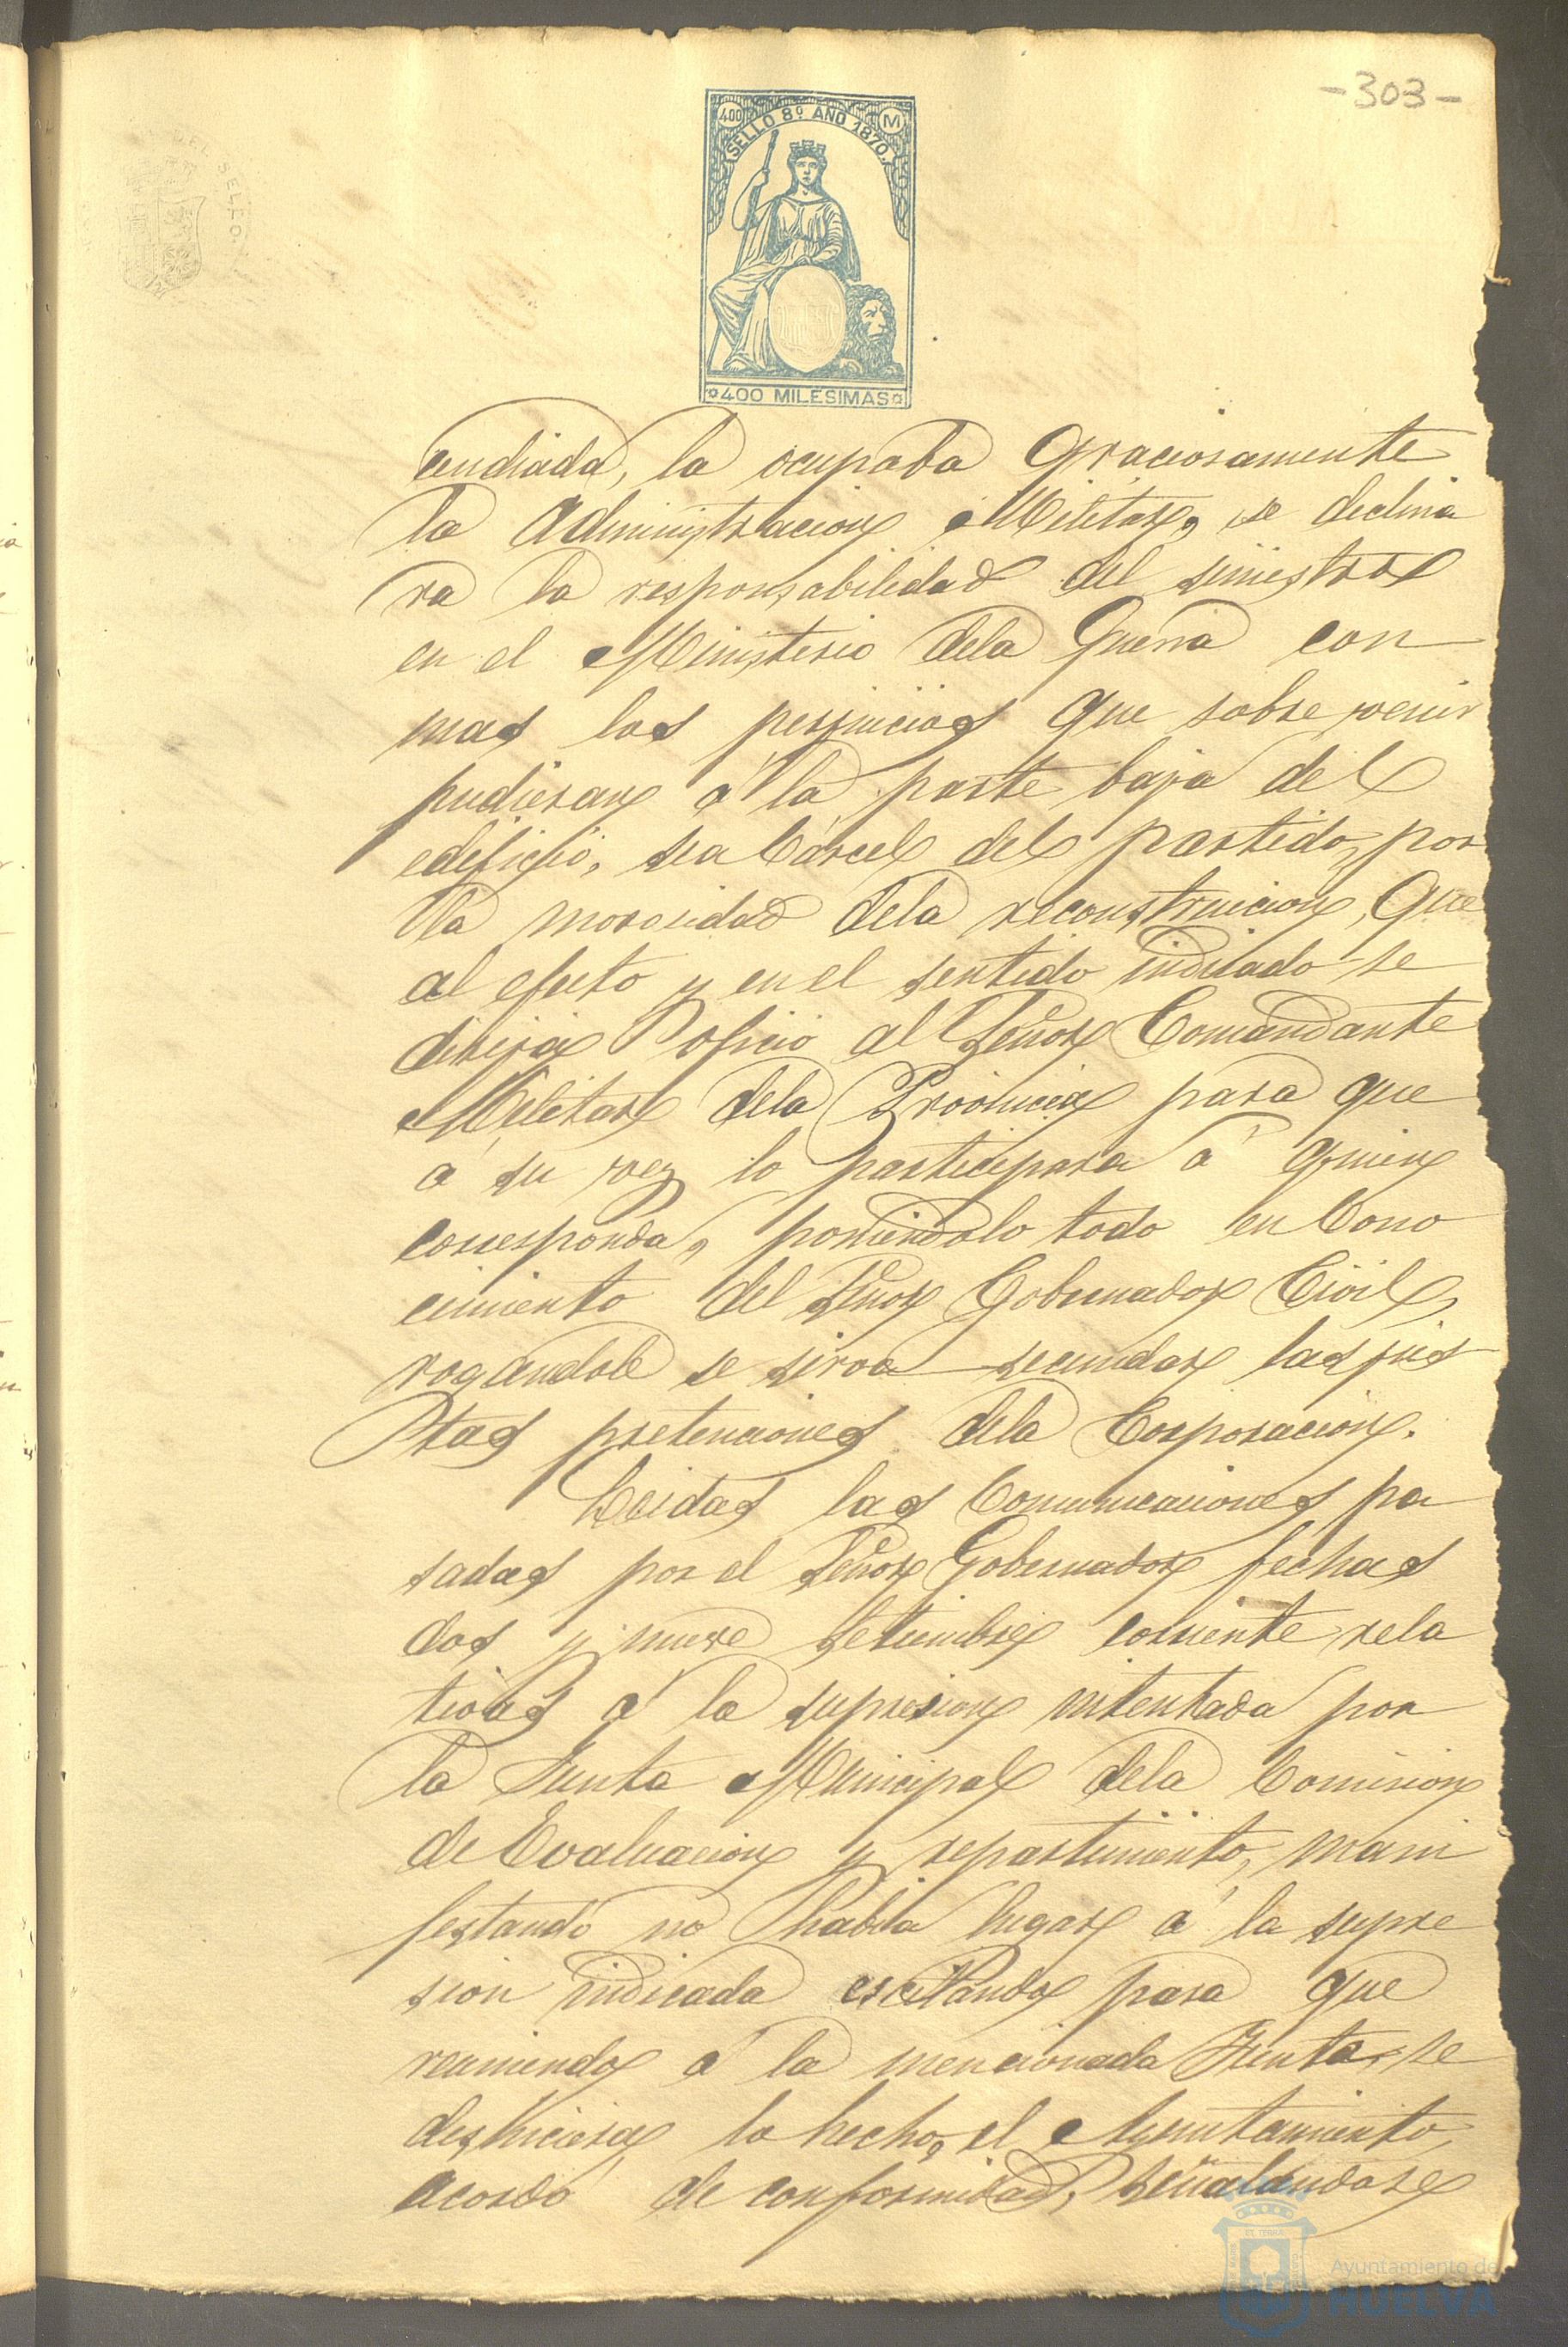 -303-
DEL SELLO
400 M
SELLO 8º AÑO 1870.
400 MILESIMAS
cendiada, la ocupaba Graciosamente
la Administracion Militar, se declina
ra la responsabilidad del siniestro
en el Ministerio dela Guerra con
mas los perjuicios que sobrevenir
pudieran á la parte baja del
edificio, sea Cárcel del partido, por
la morosidad dela reconstruicion, Que
al efecto y en el sentido indicado se
dirija Oficio al Señor Comandante
Militar dela Provincia para que
á su vez lo participara á quien
corresponda, poniendolo todo en Cono
cimiento del Señor Gobernador Civil,
rogandole se sirva secundar las jus
tas pretenciones dela Corporacion.
Leidas las Comunicaciones pa
sadas por el Señor Gobernador fechas
dos y nueve Setiembre corriente rela
tivas á la supresion intentada por
la Junta Municipal dela Comision
de Evaluacion y repartimiento, mani
festando no habia lugar á la supre
sion indicada escitando para que
reuniendo á la mencionada Junta se
deshiciera lo hecho, el Ayuntamiento,
acordó de conformidad, Señalandose
Ayuntamiento de
HUELVA